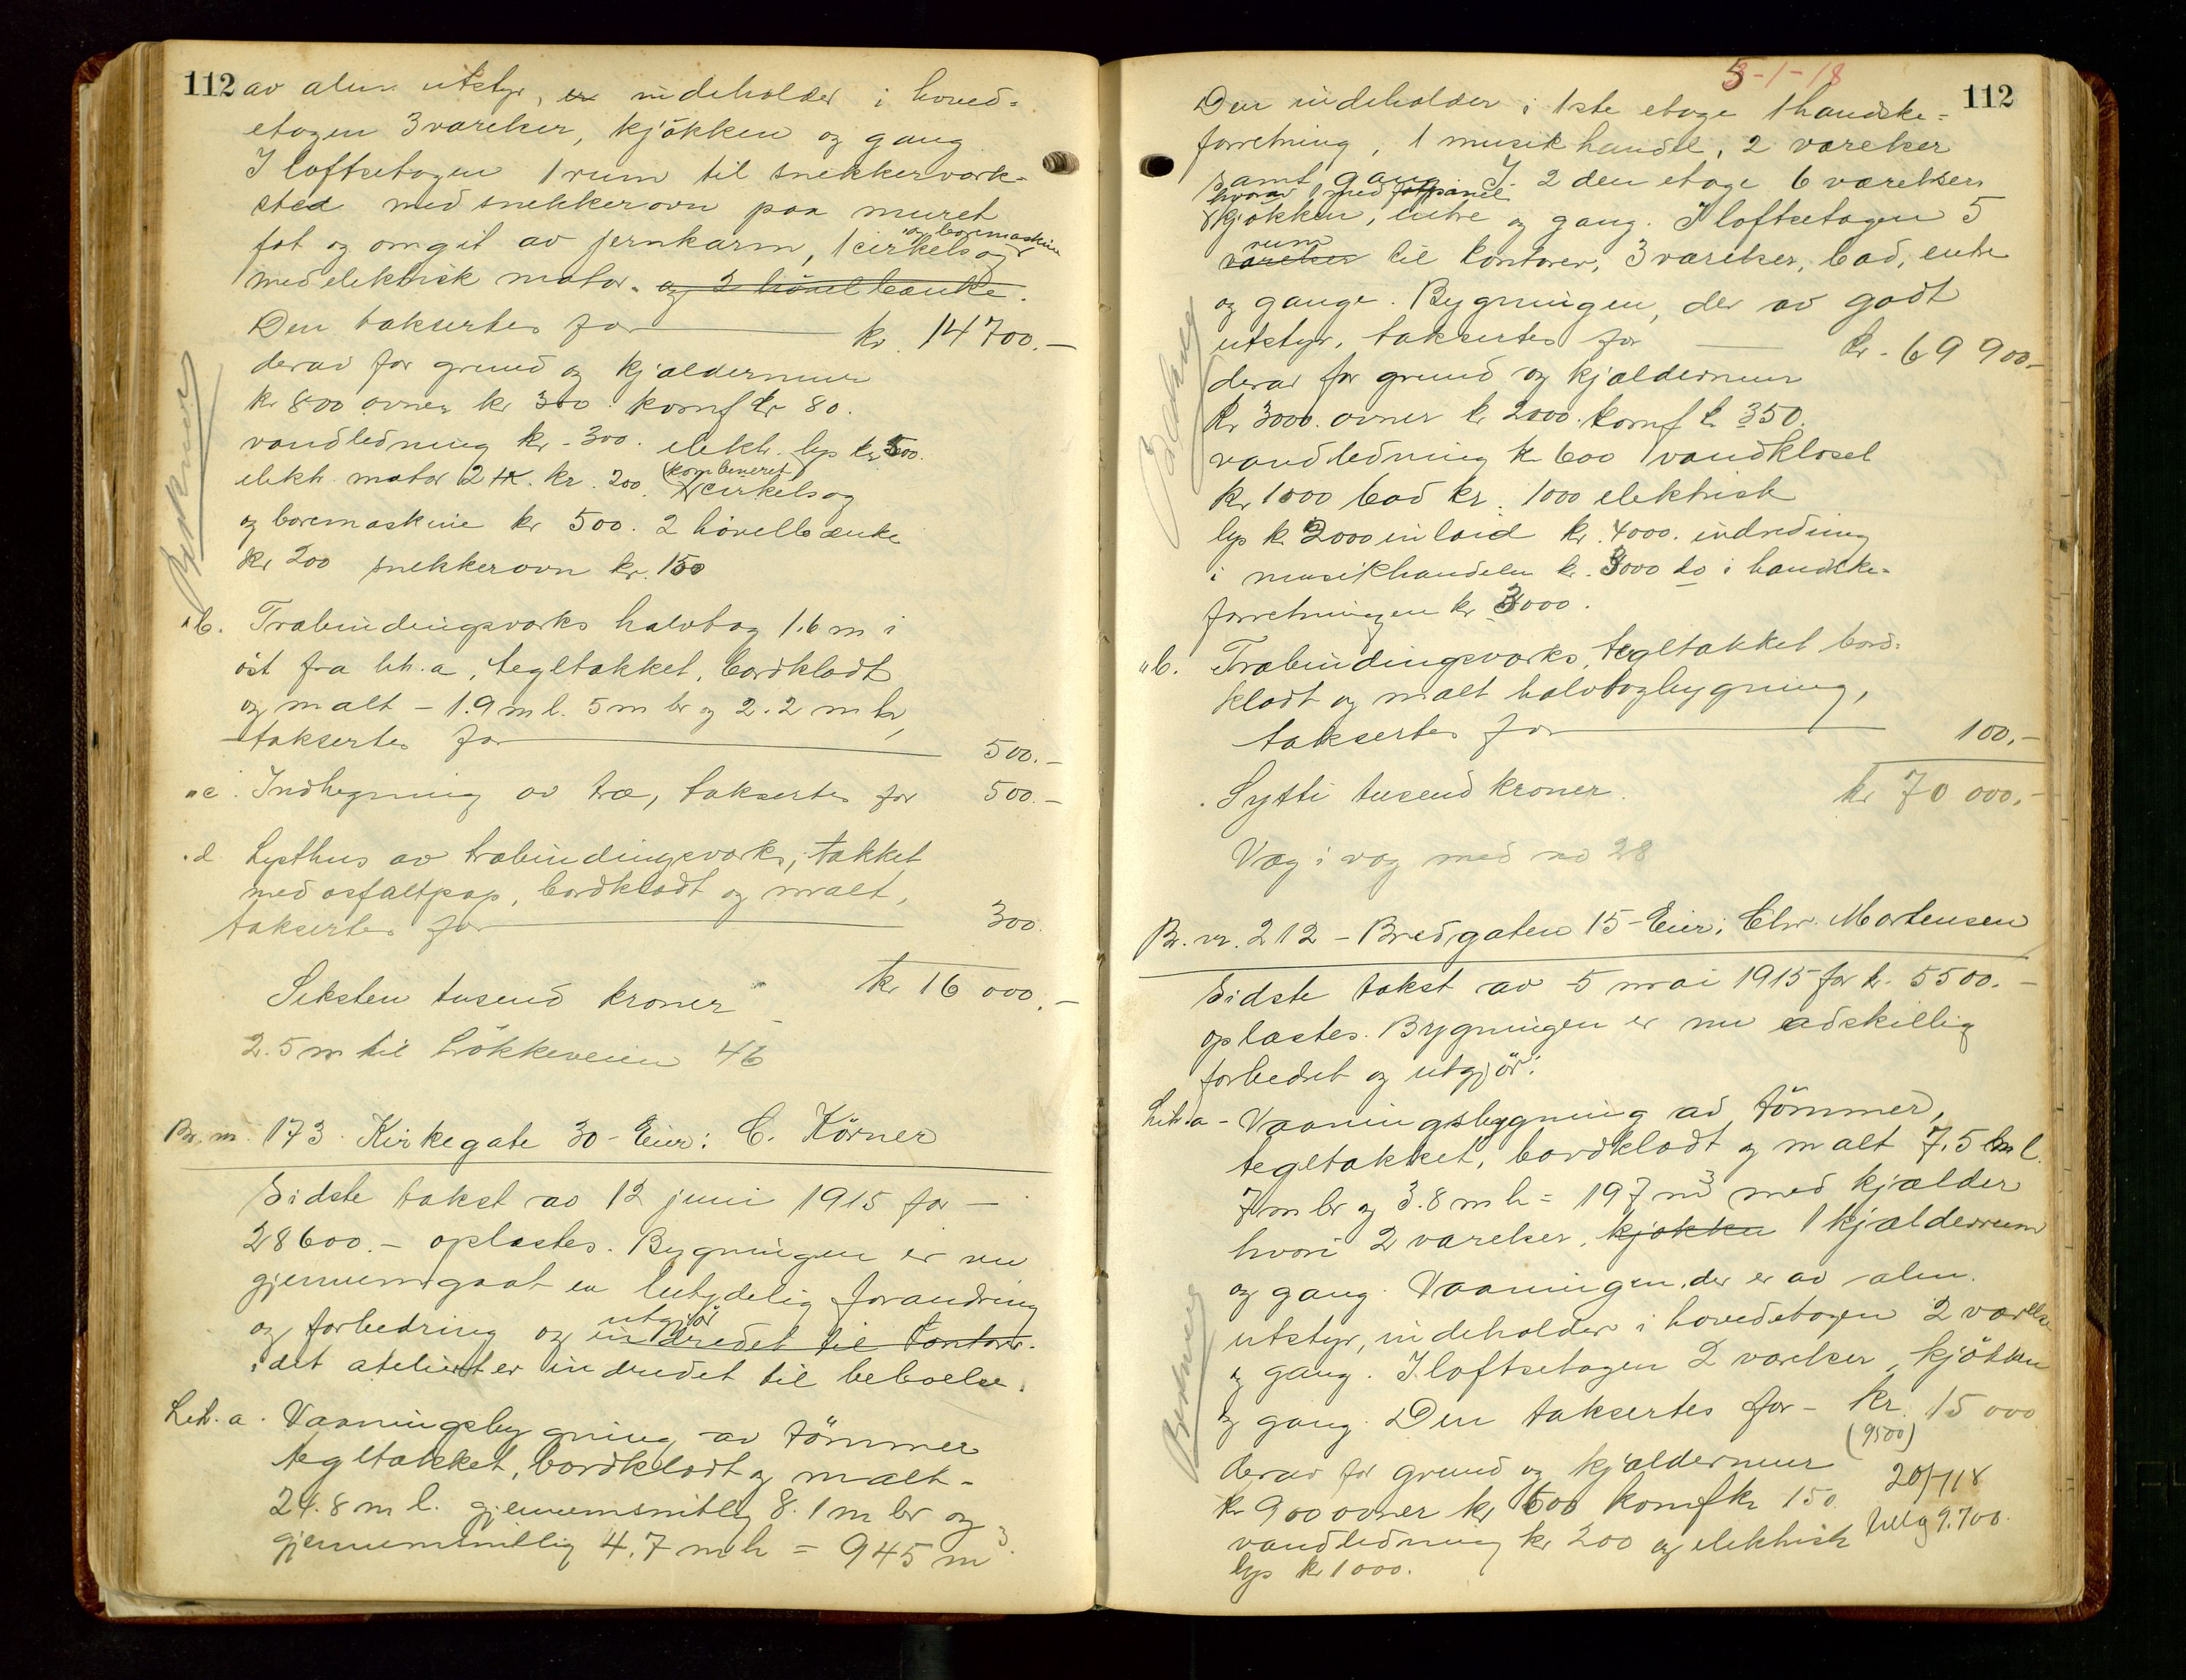 112
av alm. utstyr, er indeholder i hoved=
etagen 3 værelser, kjøkken og gang
I loftsetagen 1 rum til snekkerverk-
sted med snekkerovn paa muret
fot og omgit av jernkarm, 1 cirkelsag
og boremaskine
med elektrisk motor. og 2 høvelbænke.
Den taksertes for kr. 14700.-
derav for grund og kjældermur
kr 800 ovner kr 300. komf kr 80.
vandledning kr. 300. elekt. lys kr 500.
elekt. motor 2 HK. kr. 200. 1 cirkelsag
(kombineret)
og boremaskine kr 500. 2 høvelbænke
kr 200 snekkerovn kr. 150
" b. Træbindingsverks halvtag 1.6 m i
øst fra lit. a, tegltækket, bordklædt
og malt - 1.9 m l. 5 m br og 2.2 m h,
taksertes for 500.-
" c. Indhegning av træ, taksertes for 500.-
" d Lysthus av træbindingsverk, tækket
med asfaltpap, bordklædt og malt,
taksertes for 300.
Seksten tusend kroner kr 16 000.-
2.5 m til Løkkeveien 46
Br. nr. 173. Kirkegate 30 - Eier: C. Körner
Sidste takst av 12 juni 1915 for -
28600.- oplæstes. Bygningen er nu
gjennemgaat en betydelig forandring
og forbedring og indredet til kontorer.
utgjør
idet atelieret er indredet til beboelse.
Lit. a. Vaaningsbygning av tømmer
tegltækket, bordklædt og malt -
24.8 m l. gjennemsnitlig 8.1 m br og
gjennemsnitlig 4.7 m h = 945 m³.
5-1-18
112
Den indeholder i 1ste etage 1 handske=
forretning, 1 musikhandel, 2 værelser
samt gang. I 2den etage 6 værelser
hvorav 1 med
kjøkken, entre og gang. I loftsetagen 5
rum
værelser til kontorer, 3 værelser, bad, entre
og gange. Bygningen, der er av godt
utstyr, taksertes for kr. 69 900.-
derav for grund og kjældermur
kr 3000. ovner kr 2000. komf kr 350.
vandledning kr 600 1 vandklosel
kr 1000 bad kr. 1000 elektrisk
lys kr 2000 inlaid kr. 4000. indredning
i musikhandelen kr. 3000 do i handske-
forretningen kr 3000.
" b. Træbindingsverks, tegltækket bord-
klædt og malt halvtagbygning,
taksertes for 100.-
Sytti tusend kroner. kr 70 000.-
Væg i væg med no 28
Br. nr. 212 - Bredgaten 15 - Eier: Chr. Mortensen
Sidste takst av 5 mai 1915 for kr. 5500.-
oplæstes. Bygningen er nu adskillig
forbedret og utgjør:
Lit. a - Vaaningsbygning av tømmer,
tegltækket, bordklædt og malt 7.5 m l.
7 m br og 3.8 m h = 197 m³ med kjælder
hvori 2 værelser, kjøkken 1 kjælderrum
og gang. Vaaningen, der er av alm.
utstyr, indeholder i hovedetagen 2 værelser
og gang. I loftsetagen 2 værelser, kjøkken
og gang. Den taksertes for - kr. 15 000
(9500)
derav for grund og kjældermur
kr 900 ovner kr 600 komf kr 150.
20/-118
vandledning kr 200 og elektrisk
9.700.
lys kr 1000.